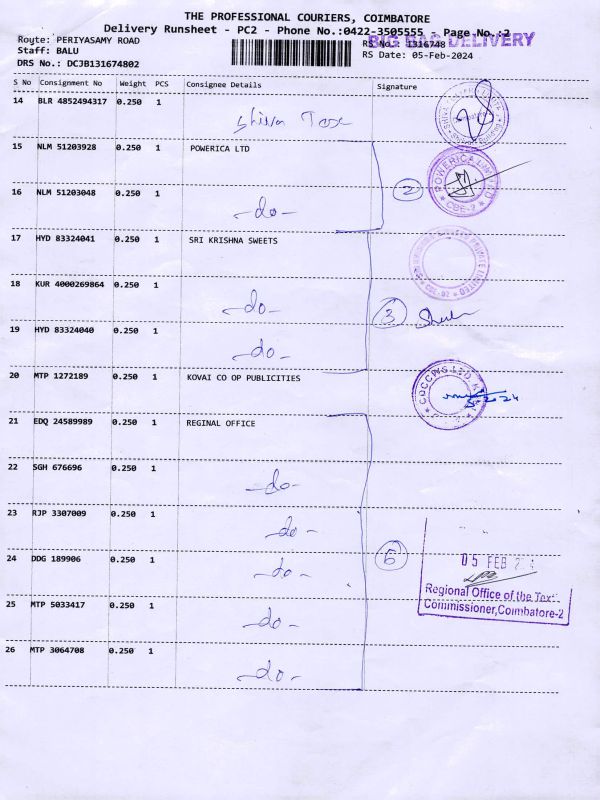 THE PROFESSIONAL COURIERS, COIMBATORE
Delivery Runsheet - PC2 - Phone No.:0422-3505555 - Page No.:2
BIG BAG DELIVERY
Route: PERIYASAMY ROAD
RS No.: 1316748
Staff: BALU
RS Date: 05-Feb-2024
DRS No.: DCJB131674802
S No Consignment No Weight PCS Consignee Details Signature
14 BLR 4852494317 0.250 1
15 NLM 51203928 0.250 1 POWERICA LTD
16 NLM 51203048 0.250 1 -do- 2
17 HYD 83324041 0.250 1 SRI KRISHNA SWEETS
18 KUR 4000269864 0.250 1 -do- 3
19 HYD 83324040 0.250 1 -do-
20 MTP 1272189 0.250 1 KOVAI CO OP PUBLICITIES
21 EDQ 24589989 0.250 1 REGINAL OFFICE
22 SGH 676696 0.250 1 -do-
23 RJP 3307009 0.250 1 -do-
24 DDG 189906 0.250 1 -do-
05 FEB
Regional Office of the
Commissioner, Coimbatore-2
25 MTP 5033417 0.250 1 -do-
26 MTP 3064708 0.250 1 -do-